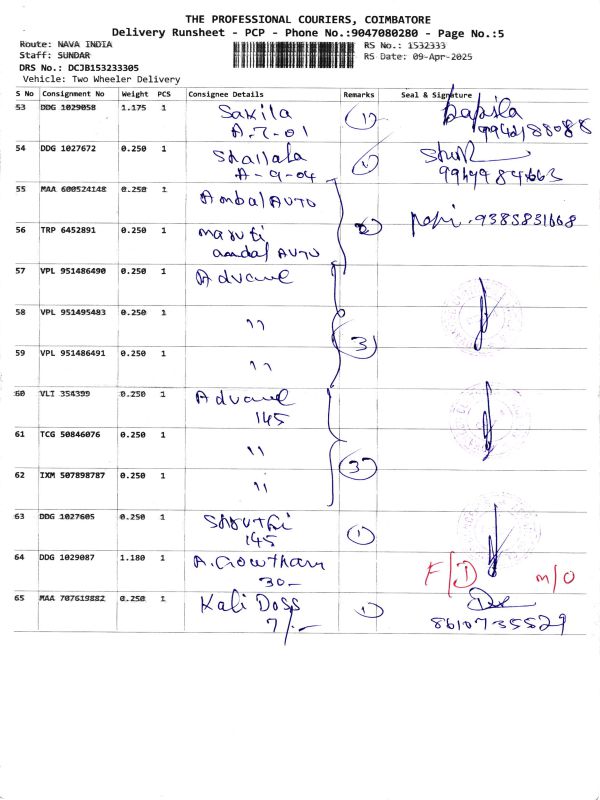 THE PROFESSIONAL COURIERS, COIMBATORE
Delivery Runsheet - PCP - Phone No.:9047080280 - Page No.:5
Route: NAVA INDIA
Staff: SUNDAR
DRS No.: DCJB153233305
Vehicle: Two Wheeler Delivery
RS No.: 1532333
RS Date: 09-Apr-2025
S No Consignment No Weight PCS Consignee Details Remarks Seal & Signature
53 DDG 1029058 1.175 1 Sakila 1
A-7-01 9942188088
54 DDG 1027672 0.250 1 Shailaja 1
A-9-04
55 MAA 600524148 0.250 1 Ambal AUTO
56 TRP 6452891 0.250 1 maruti 2 9385831668
ambal AUTO
57 VPL 951486490 0.250 1 Advance
58 VPL 951495483 0.250 1 ''
59 VPL 951486491 0.250 1 '' 3
60 VLI 354399 0.250 1 Advance
145
61 TCG 50846076 0.250 1 ''
62 IXM 507898787 0.250 1 '' 3
63 DDG 1027605 0.250 1 Shruthi 1
145
64 DDG 1029087 1.180 1 A. Gowtham F/D m/o
30-
65 MAA 707619882 0.250 1 Kali Doss 1
7/- 8610735529